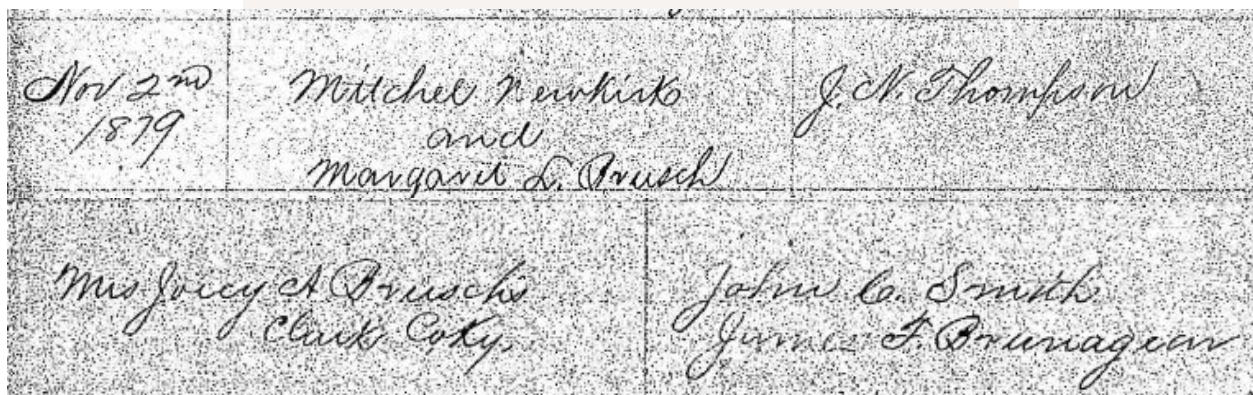 Nov 2nd
1879
Mitchel Newkirk
and
Margaret L. Brusch
J. N. Thompson
Mrs Joicy A Brusch's
Clark Co Ky.
John C. Smith
James F. Brunagear